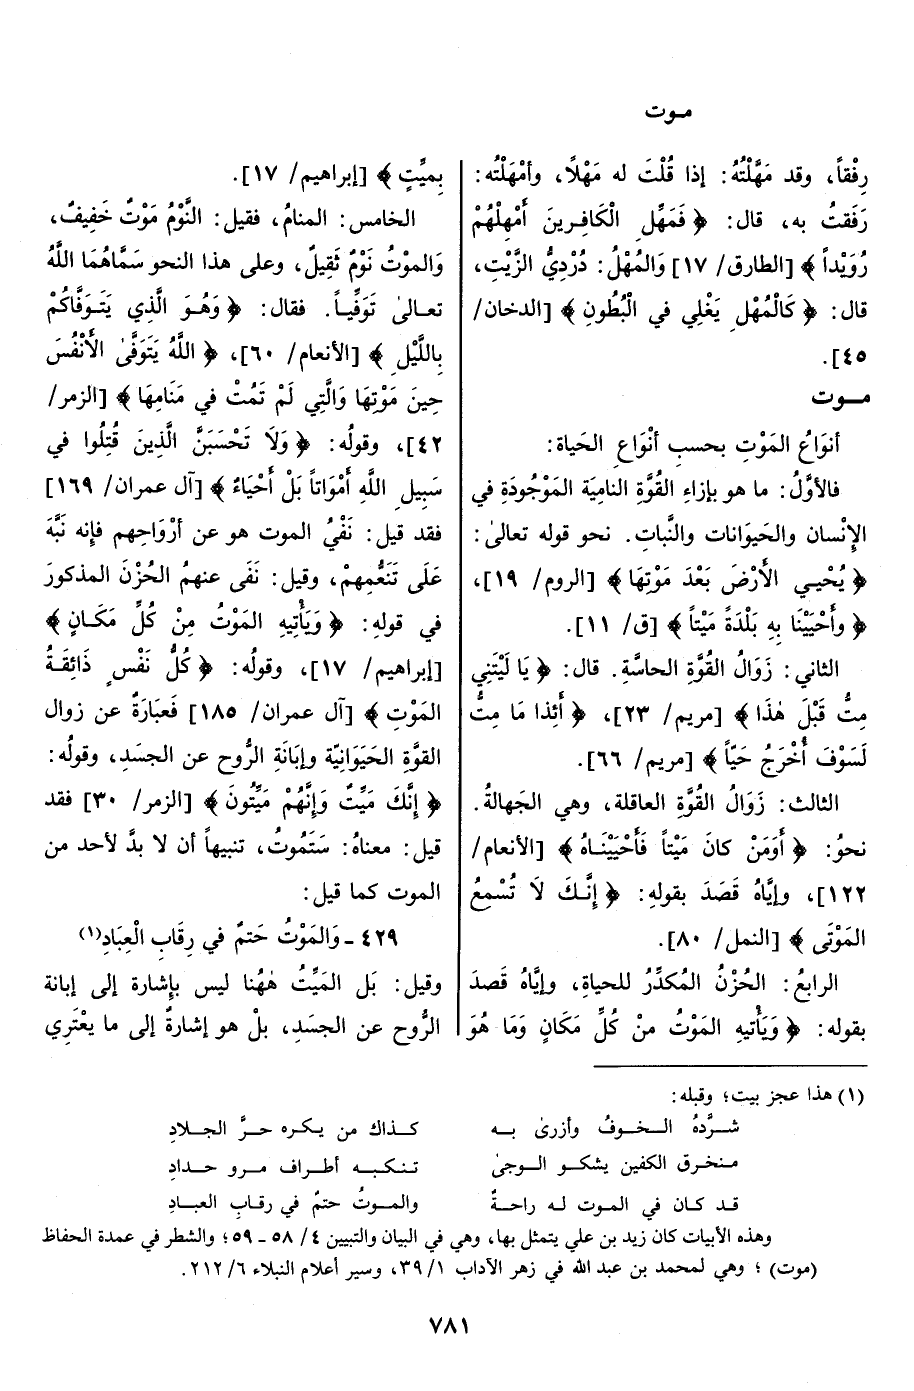 موت
رِفْقاً، وقد مَهَّلْتُهُ: إذا قُلْتَ له مَهْلاً، وأمْهَلْتُه:
رَفَقتُ به، قال: ﴿ فَمَهِّلِ الْكَافِرِينَ أَمْهِلْهُمْ
رُوَيْداً ﴾ [الطارق/ ١٧] وَالمُهْلُ: دُرْدِيُّ الزَّيْتِ،
قال: ﴿ كَالْمُهْلِ يَغْلِي في الْبُطُونِ ﴾ [الدخان/
٤٥].
موت
أنوَاعُ المَوْتِ بحسبِ أنْوَاعِ الحَياة:
فالأوَّلُ: ما هو بإزاءِ القُوَّةِ النامِيَة المَوْجُودَةِ في
الإنْسان والحَيوَانات والنَّباتِ. نحو قوله تعالىٰ:
﴿ يُحْيـي الأرْضَ بَعْدَ مَوْتِهَا ﴾ [الروم/ ١٩]،
﴿ وأَحْيَيْنَا بِه بَلْدَةً مَيْتاً ﴾ [ق/ ١١].
الثاني: زَوَالُ القُوَّةِ الحاسَّةِ. قال: ﴿ يَا لَيْتَنِي
مِتُّ قَبْلَ هٰذَا ﴾ [مريم/ ٢٣]، ﴿ أَئِذا مَا مِتُّ
لَسَوْفَ أُخْرَجُ حَيّاً ﴾ [مريم/ ٦٦].
الثالث: زَوَالُ القُوَّةِ العاقلة، وهي الجَهالةُ.
نحوُ: ﴿ أَوَمَنْ كانَ مَيْتاً فَأحْيَيْنَـاهُ ﴾ [الأنعام/
١٢٢]، وإيَّاهُ قَصَدَ بقولهِ: ﴿ إنَّـكَ لَا تُسْمِعُ
المَوْتَى ﴾ [النمل/ ٨٠].
الرابعُ: الحُزْنُ المُكدِّرُ للحياةِ، وإيَّاهُ قَصدَ
بقوله: ﴿ وَيَأتيهِ المَوْتُ مِنْ كُلِّ مَكَانٍ وَمَا هُوَ
بِميِّتٍ ﴾ [إبراهيم/ ١٧].
الخامس: المنامُ، فقيل: النَّوْمُ مَوْتٌ خَفِيفٌ،
وَالموْتُ نَوْمٌ ثَقِيلٌ، وعلى هذا النحو سَمَّاهُمَا اللَّهُ
تعـالىٰ تَوَفِّيـاً. فقال: ﴿ وَهُـوَ الَّذِي يَتَـوَفَّاكُمْ
بِاللَّيْلِ ﴾ [الأنعام/ ٦٠]، ﴿ اللَّهُ يَتَوَفَّىٰ الأَنْفُسَ
حِينَ مَوْتِهَا وَالَّتِي لَمْ تَمُتْ في مَنَامِهَا ﴾ [الزمر/
٤٢]، وقولُه: ﴿ وَلَا تَحْسَبَنَّ الَّذِينَ قُتِلُوا في
سَبِيلِ اللَّهِ أمْوَاتاً بَلْ أَحْيَاءٌ ﴾ [آل عمران/ ١٦٩]
فقد قيل: نَفْيُ الموت هو عن أرْوَاحِهم فإنه نَبَّهَ
عَلَى تَنَعُّمِهِمْ، وقيل: نَفَى عنهمُ الحُزْنَ المذكورَ
في قولهِ: ﴿ وَيَأْتِيهِ المَوْتُ مِنْ كُلِّ مَكَـانٍ ﴾
[إبراهيم/ ١٧]، وقولُه: ﴿ كُلُّ نَفْسٍ ذَائِقَـةُ
المَوْتِ ﴾ [آل عمران/ ١٨٥] فَعبَارَةٌ عن زوال
القوَّةِ الحَيَوَانِيَّة وإبَانَةِ الرُّوح عن الجسَدِ، وقولُه:
﴿ إنَّكَ مَيِّتٌ وَإنَّهُمْ مَيِّتُونَ ﴾ [الزمر/ ٣٠] فقد
قيل: معناهُ: سَتَمُوتُ، تنبيهاً أن لا بدَّ لأحد من
الموت كما قيل:
٤٢٩ ـ وَالمَوْتُ حَتمٌ في رِقَابِ الْعِبَادِ(١)
وقيل: بَل المَيِّتُ هٰهُنا ليس بإشارة إلى إبانة
الرُّوح عن الجسَدِ، بلْ هو إشارةٌ إلى ما يعْتَرِي
(١) هذا عجز بيت؛ وقبله:
شـرَّدهُ الـخـوفُ وأزرىٰ بـه كـذاك من يـكـره حـرَّ الـجـلادِ
منخرق الكفين يشكـو الـوجىٰ تـنـكـبـه أطـراف مـرو حـدادِ
قـد كـان في المـوت لـه راحـةٌ والمـوتُ حتمٌ في رقابِ العبـادِ
وهذه الأبيات كان زيد بن علي يتمثل بها، وهي في البيان والتبيين ٤/ ٥٨ ـ ٥٩؛ والشطر في عمدة الحفاظ
(موت) ؛ وهي لمحمد بن عبد الله في زهر الآداب ١/ ٣٩، وسير أعلام النبلاء ٦/ ٢١٢.
٧٨١